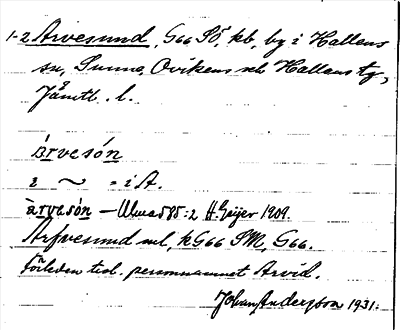 1-2 Arvesund, G66 SÖ, kb, by i Hallens
sn, Sunne, Ovikens och Hallens tg,
Jämtl. l.
àrvesón
i ~ = i A.
àrvesón — Ulma 585:2 H. Geijer 1909.
Arfvesund ml, k G66 SM, G66.
Förleden trol. personnamnet Arvid.
Johan Anderson 1931.